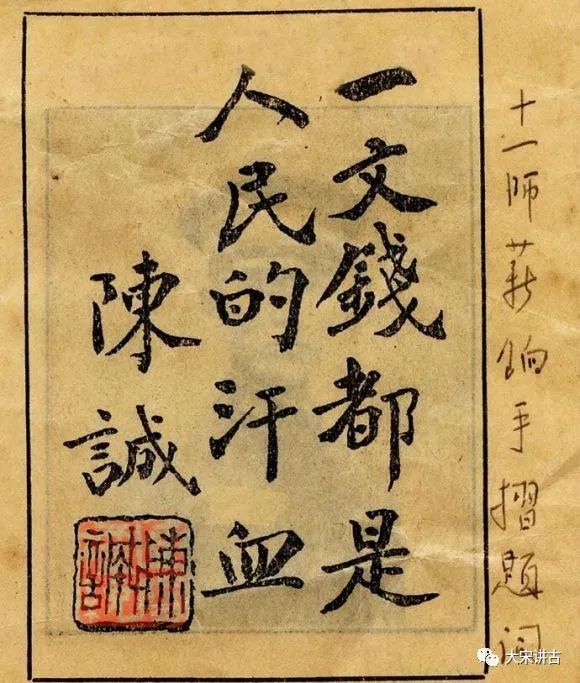 十一师薪饷手摺题词
一文錢都是
人民的汗血
陳誠
陳誠
大宋讲古